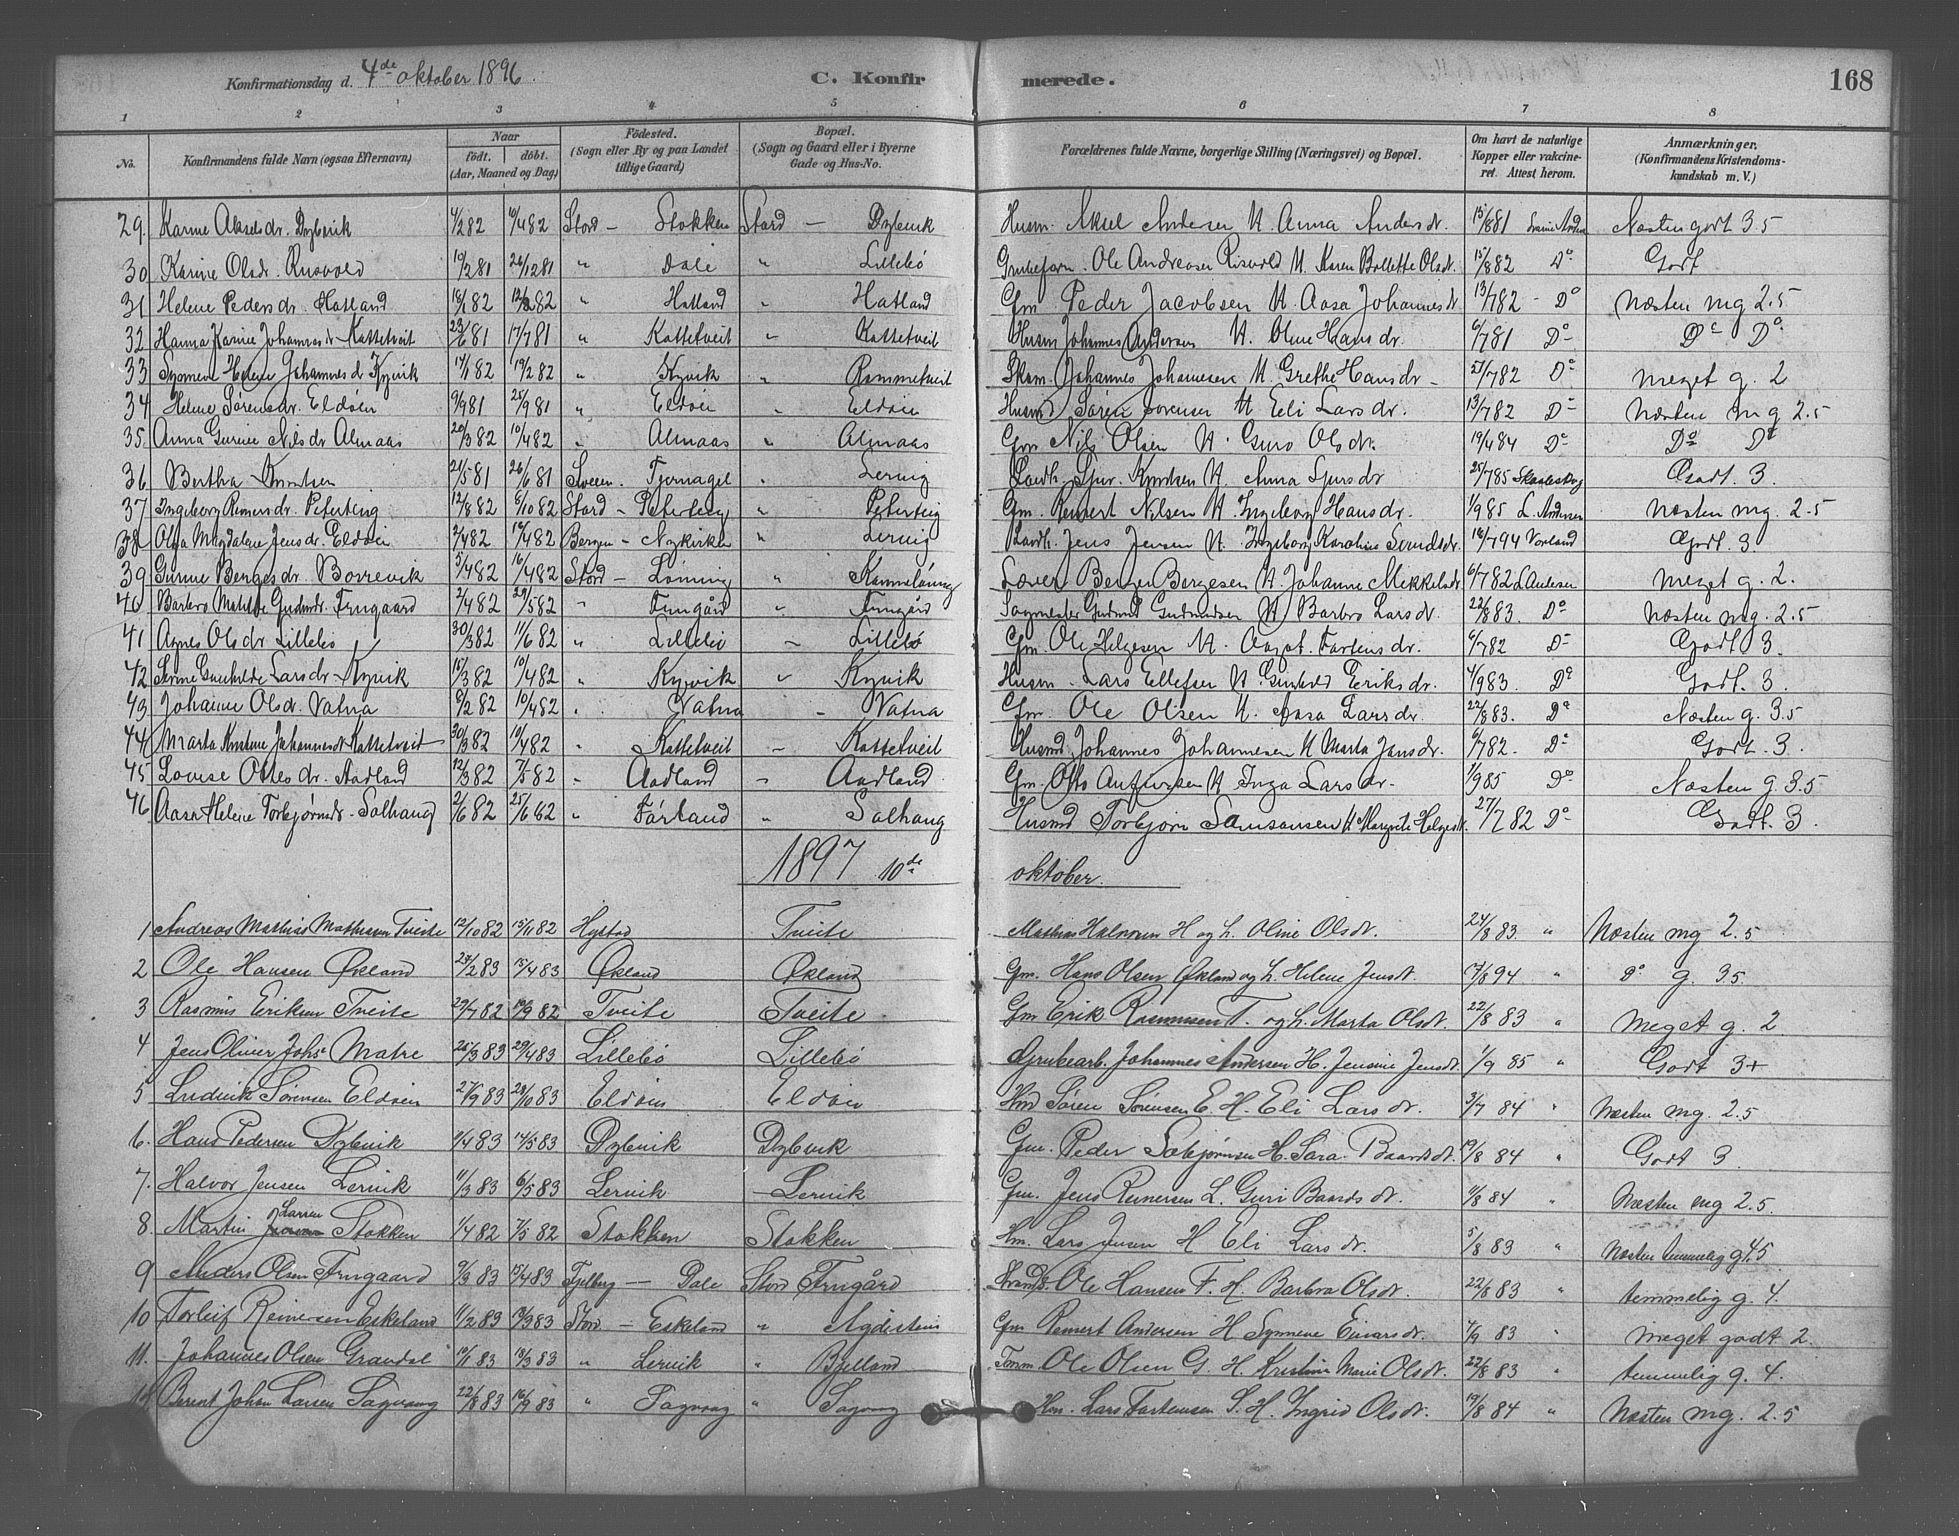 Konfirmationsdag d. 4de oktober 1896. C. Konfirmerede. 168
1 2 3 4 5 6 7 8
No. Konfirmandens fulde Navn (ogsaa Efternavn) Naar födt. döbt. (Aar, Maaned og Dag) Födested. (Sogn eller By og paa Landet tillige Gaard) Bopæl. (Sogn og Gaard eller i Byerne Gade og Hus-No. Forældrenes fulde Navne, borgerlige Stilling (Næringsvei) og Bopæl. Om havt de naturlige Kopper eller vakcineret. Attest herom. Anmærkninger. (Konfirmandens Kristendomskundskab m. V.)
29. Karine Akselsdr. Dybvik 4/282 10/482 Stord – Stokken Stord – Dybvik Husm. Aksel Andersen H. Anna Andersdr. 15/881 Næsten godt 3.5
30 Karine Olsdr. Rusvold 19/281 26/1281 " Dale " Lillebø Grubefor. Ole Andreasen Risvold H. Karen Bollette Olsdr. 15/882 Do Godt
31 Helene Pedersdr. Hatland 18/182 12/282 " Hatland " Hatland Gm Peder Jacobsen H. Aasa Johannesdr. 13/782 - Do Næsten mg 2.5
32 Hanna Karine Johannesdr. Kattetveit 23/681 17/781 " Kattetveit " Kattetveit Husm Johannes Andersen H. Oline Hansdr. 6/781 Do Do Do
33 Synneve Helene Johannesd Kyvik 14/182 19/282 " Kyvik " Rommetveit Johannes Johannesen H. Grethe Hansdr. 27/782 Do meget g. 2
34 Helene Sørensdr. Eldøen 9/981 25/981 " Eldøen " Eldøen Husmd Søren Sørensen H Eli Larsdr. 13/782 Do Næsten mg 2.5
35. Anna Gurine Nilsdr Almaas 20/382 10/482 " Almaas " Almaas Gm Nils Olsen H. Guro Olsdr. 19/484 Do Do Do
36 Bertha Knutsen 21/581 26/681 Sveen. Tjernagel " Lervig Landh. Sjur. Knudsen H Anna Sjursdr 25/785 Godt 3.
37 Ingeborg Reinersdr. Peterteig 12/882 8/1082 Stord – Peterteig " Peterteig Gm. Reinert Nilsen H. Ingeborg Hansdr. 1/985 L. Andersen Næsten mg. 2.5
38 Olga Magdalene Jensdr. Eldøen 2/482 16/482 Bergen – Nykirken " Lervig Landh. Jens Jensen H. Ingeborg Karoline Sundsdr. 16/794 Vorland Godt. 3.
39 Gunne Bergesdr. Borrevik 5/482 16/482 Stord – Lönning " Lover Berge Bergesen H. Johanne Mikkelsdr. 6/782 L Andersen meget g. 2.
40 Barbro Matilde Gudmdr. Frugaard 2/482 29/582 " Frugård " Frugård Sagmester Gudmd Gudmundsen H Barbro Larsdr. 22/883. Do Næsten mg. 2.5
41 Agnes Olsdr Lillebø 30/382 11/682 " Lillebø " Lillebø Gm. Ole Helgesen H. Aagot. Fartensdr. 6/782 Do Godt 3.
42 Serine Gunhilde Larsdr. Kyvik 15/382 10/482 " Kyvik " Kyvik Husm. Lars Ellefsen H. Gunhild Eriksdr. 4/983. Do Godt. 3.
43 Johanne Olsdr. Vatna 8/282 10/482 " Vatna " Vatna Gm. Ole Olsen H. Aasa Larsdr. 22/883. Do Næsten g. 3.5
44 Marta Kristine Johannesdr Kattetveit 30/382 10/482 " Kattetveit " Kattetveit Husmd Johannes Johannesen H Marta Jansdr. 6/782. Do Godt. 3.
45 Lovise Ottesdr. Aadland 12/382 7/582 " Aadland " Aadland Gm. Otto Anfinsen H Inga Larsdr. 1/985 Do Næsten g 3.5
46 Aasa Helene Torbjørnsdr. Solhaug 2/682 25/682 " Førland " Solhaug Husmd Torbjørn Samsonsen H Margrete Helgesdr. 27/782 Do Godt. 3.
1897 10de oktober.
1 Andreas Mathias Mathiasen Tveite 12/1082 15/1182 Hystad Tveite Mathias Halvorsen H og L. Oline Olsdr. 24/883. " Næsten mg 2.5
2 Ole Hansen Økland 27/283 15/483 Økland Økland Gm. Hans Olsen Økland og L. Helene Jensdr. 17/894 " Do g. 3.5
3 Rasmus Eriksen Tveite 29/782 10/982 Tveite Tveite Gm Erik Rasmussen T. og L. Marta Olsdr. 22/883 " Meget g. 2
4 Jens Oliver Johs. Matre 25/383 29/483 Lillebø Lillebø Grubearb. Johannes Andersen H. Jensine Jensdr. 1/985 " Godt 3+
5 Ludvik Sørensen Eldøen 27/983 28/1083 Eldøen Eldøen Hmd Sören Sörensen E. H. Eli Larsdr. 3/784 " Næsten mg. 2.5
6. Hans Pedersen Dybvik 9/483 14/583 Dybvik Dybvik Gm. Peder Sæbjørnsen H. Sara Baardsdr. 19/884 " Godt 3.
7. Halvor Jensen Lervik 11/383 6/583 Lervik Lervik Gm. Jens Reinersen L. Guri Baardsdr. 11/884 " Næsten mg 2.5.
8. Martin Larsen Stokken 1/482 7/582 Stokken Stokken Hm. Lars Jensen H Eli Larsdr. 5/883 " Næsten temmelig g 4.5
9 Anders Olsen Frugaard 9/383 15/483 Fjelberg – Dale Stord Frugård Ole Hansen F. H. Barbra Olsdr. 22/883 " temmelig g. 4.
10 Torleif Reinersen Eskeland 11/283 18/383 Stord – Eskeland " Agdestein Gm Reinert Andersen H Synneve Einarsdr. 4/983 " meget godt 2.
11. Johannes Olsen Grandal 10/183 18/383 " Lervik " Bjelland Tomm. Ole Olsen G. H. Kristine Marie Olsdr. 22/883 " temmelig g. 4.
12 Berent Johan Larsen Sagvaag 22/883 16/983 " Sagvaag " Sagvag Hm. Lars Fartensen S. H. Ingrid Olsdr. 19/884 " Næsten mg. 2.5